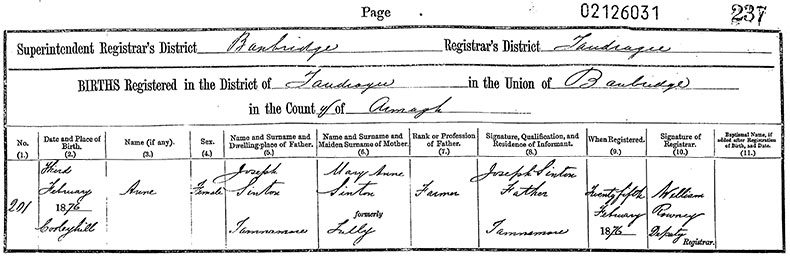 Page 02126031 237
Superintendent Registrar's District Banbridge Registrar's District Tandragee
BIRTHS Registered in the District of Tandragee in the Union of Banbridge
in the County of Armagh
No. Date and Place of Birth. Name (if any). Sex. Name and Surname and Dwelling-place of Father. Name and Surname and Maiden Surname of Mother. Rank or Profession of Father. Signature, Qualification, and Residence of Informant. When Registered. Signature of Registrar. Baptismal Name, if added after Registration of Birth, and Date.
(1.) (2.) (3.) (4.) (5.) (6.) (7.) (8.) (9.) (10.) (11.)
Third Joseph Mary Anne Joseph Sinton
February Anne Female Sinton Sinton Farmer Father Twentyfifth William
201 1876 formerly February Rowney
Corleyhill Tamnamore Lully Tamnemore 1876 Deputy Registrar.